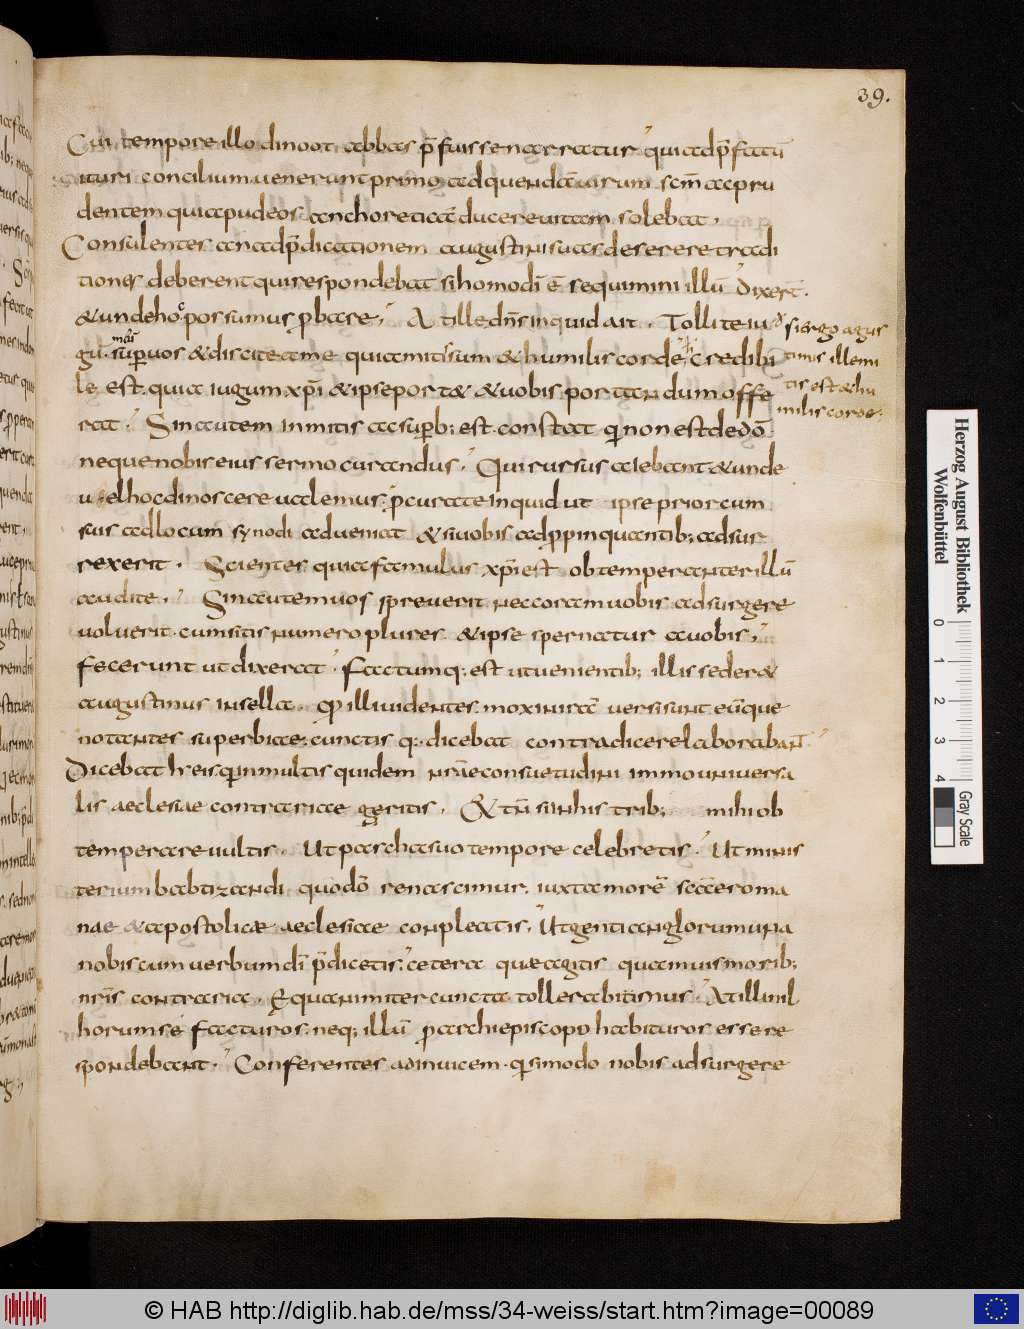 39.
Cui tempore illo dinoot abbas p̄fuisse narratur qui ad p̄fatū
ituri concilium venerunt primo ad quendā virum scm̄ ac pru
dentem qui apud eos anchoreticā ducere vitam solebat.
Consulentes an ad p̄dicationem augustini suas deserere tradi
tiones deberent qui respondebat si homo dī ē sequimini illū dixert̄.
& unde hoc possumus ꝓbare, At ille dn̄s inquid ait. Tollite iu
gū mē sup̲ vos & discite a me quia mitis sum & humilis corde, Credibi
le est quia iugum xp̄i & ipse port& & vobis portandum offe
rat. Sin autem inmitis ac sup̲b; est. constat q non est de dō
neque nobis eius sermo curandus. Qui rursus aiebant & unde
vel hoc dinoscere valemus ꝓcurate inquid ut ipse prior cum
suis ad locum synodi adveniat & si vobis adpp̲inquantib; adsur
rexerit. Scientes quia famulus xp̄i est obtemperanter illū
audite. Sin autem vos spreverit nec coram vobis adsurgere
voluerit. cum sitis numero plures & ipse spernatur a vobis,
fecerunt ut dixerat. Factumq; est ut venientib; illis seder&
augustinus in sella. Qđ illi videntes mox in irā versi sunt eūque
notantes superbiae. cunctis q; dicebat contradicere laborabant̄
Dicebat h eis qđ in multis quidem nrāe consuetudini immo universa
lis aeclesiae contraria geritis. Et tn̄ si in his trib; mihi ob
temperare vultis. Ut pascha suo tempore celebretis. Ut minis
terium babtizandi quo dō renascimur. iuxta morē scāe roma
nae & apostolicæ aeclesiae conpleatis. Ut genti anglorum una
nobiscum verbum dī p̄dicetis. cetera quæ agitis quamvis morib;
nrīs contraria. Equanimiter cuncta tollerabimus. At illi nil
horum se facturos. neq; illū ꝓ archiepiscopo habituros esse re
spondebant. Conferentes adinvicem. q si modo nobis adsurgere
si ergo agus
tinus ille mi
tis est & hu
milis corde.
Herzog August Bibliothek
Wolfenbüttel
0 1 2 3 4
Gray Scale
© HAB http://diglib.hab.de/mss/34-weiss/start.htm?image=00089